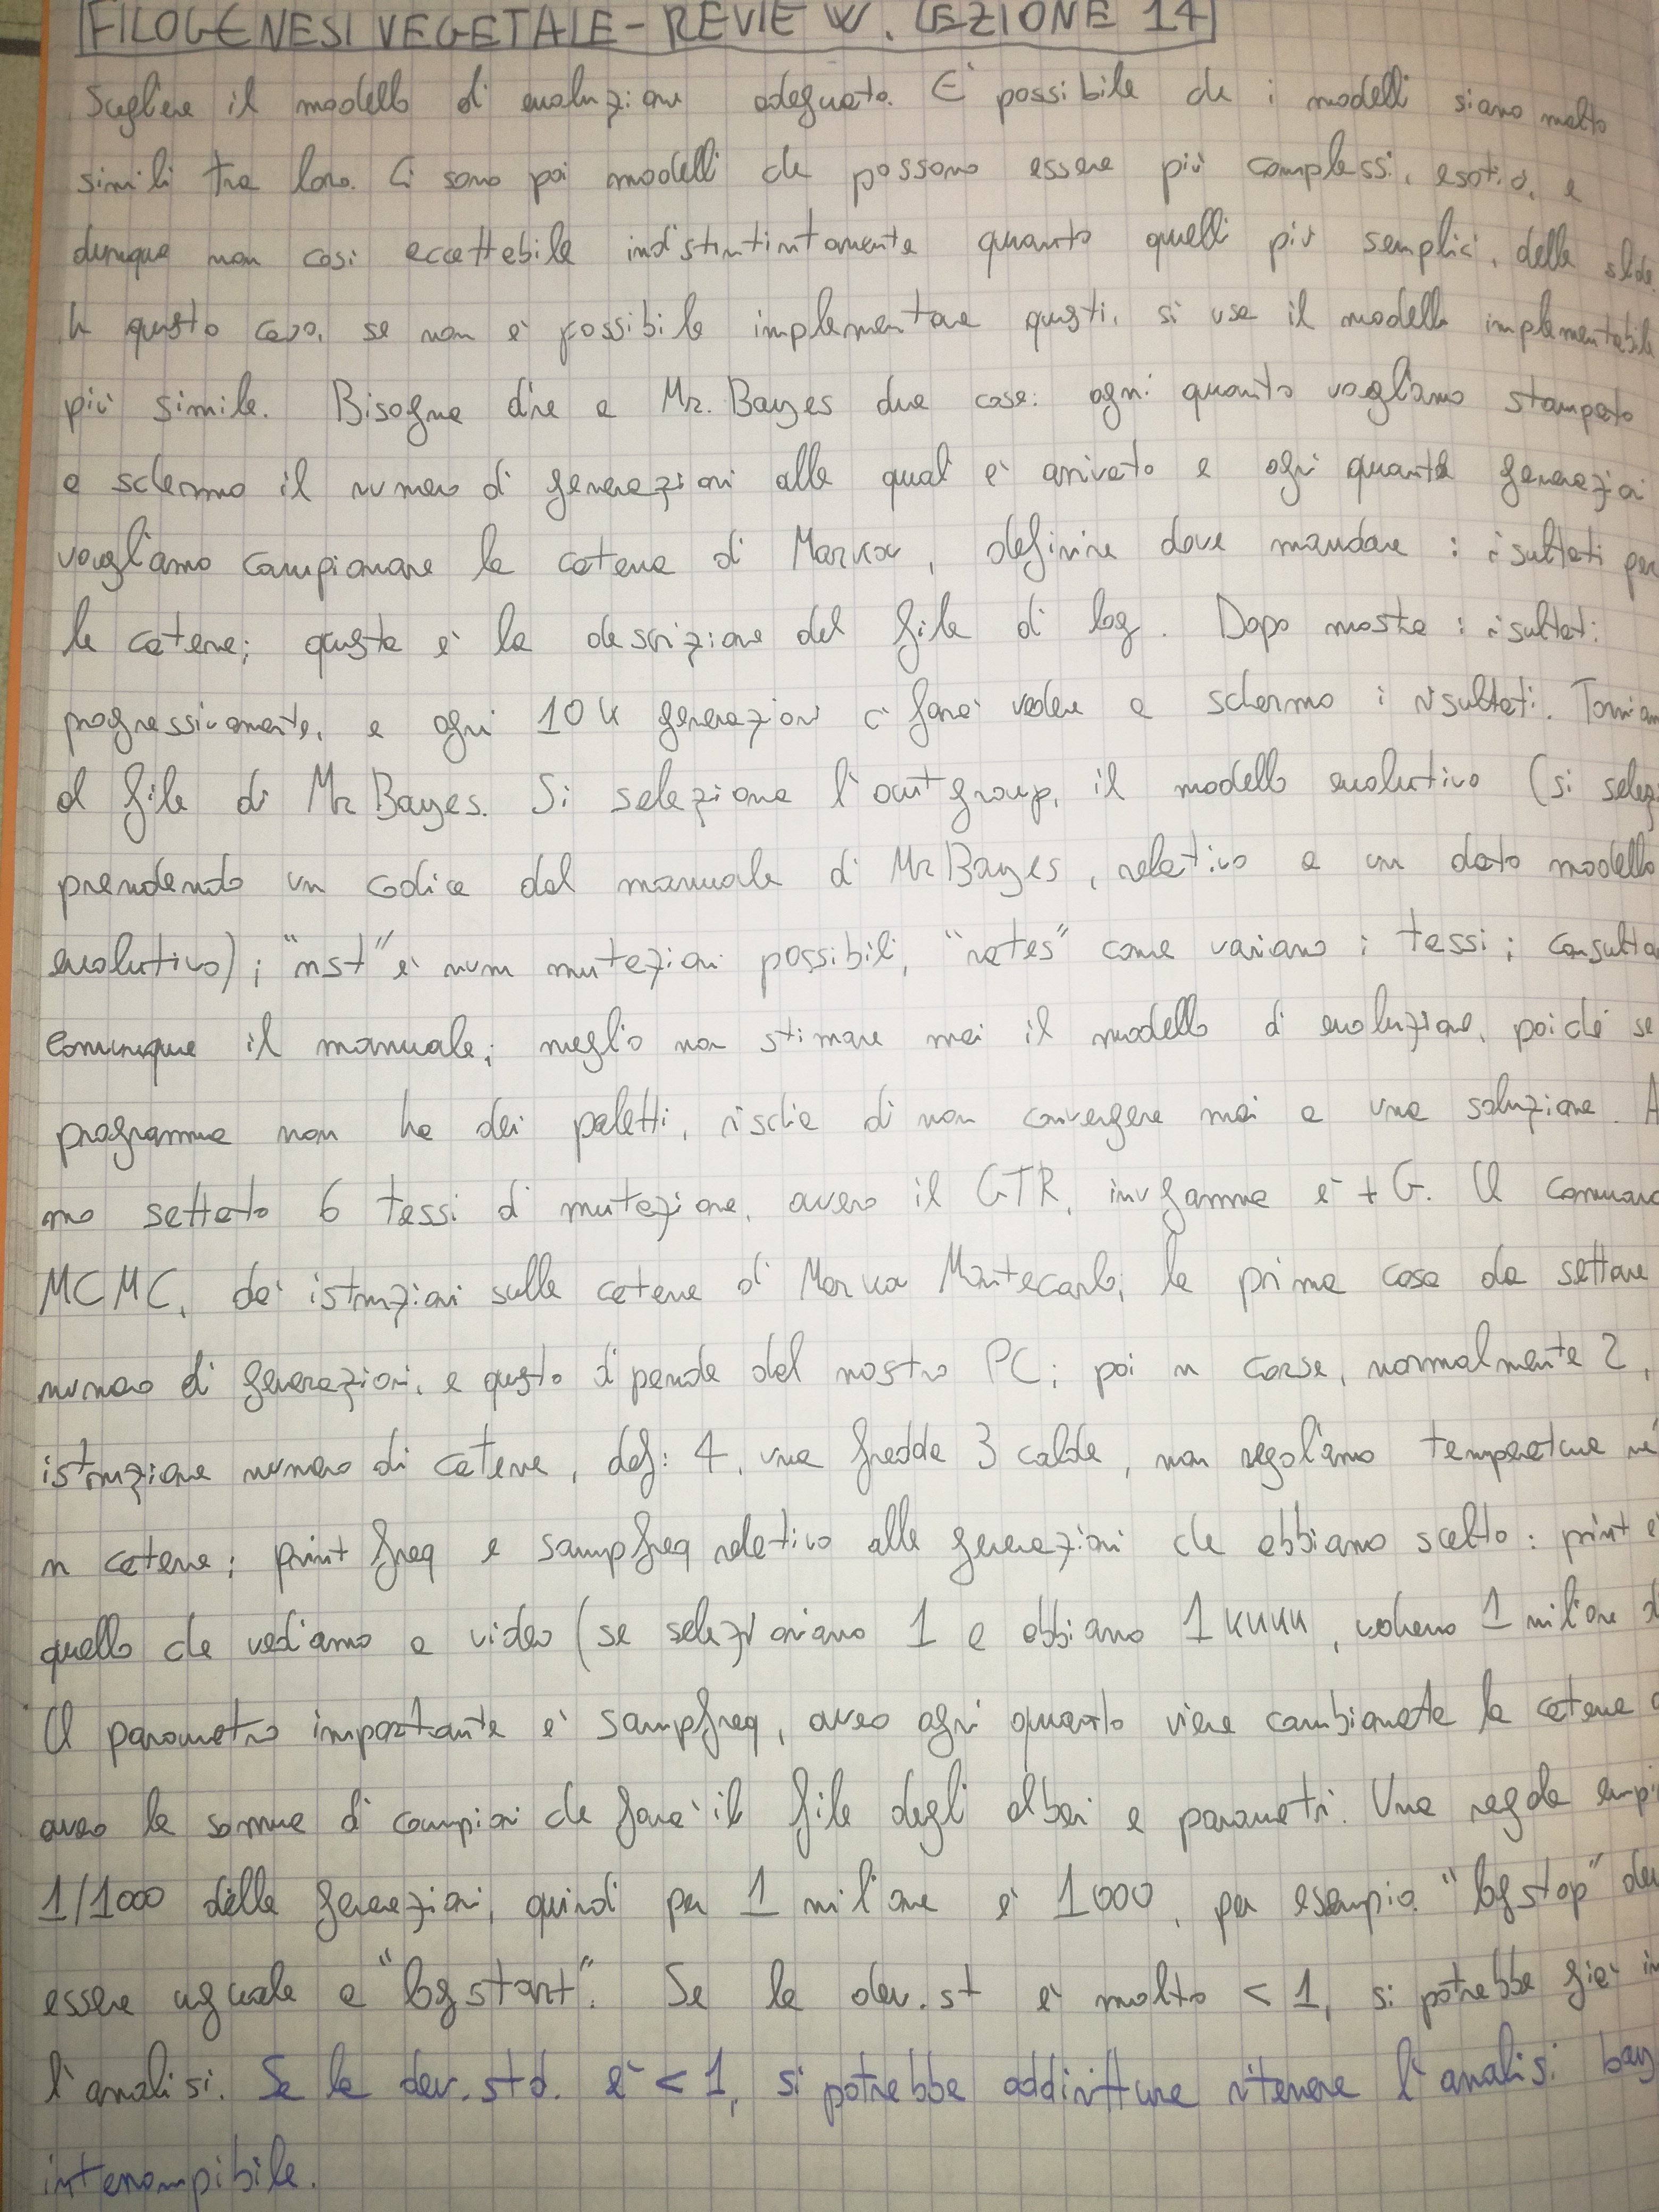 FILOGENESI VEGETALE - REVIEW. LEZIONE 14
Scegliere il modello di evoluzione adeguato. E' possibile che i modelli siano molto
simili tra loro. Ci sono poi modelli che possono essere più complessi, esotici, e
dunque non così accettabile indistintintamente quanto quelli più semplici, delle slide.
In questo caso, se non è possibile implementare questi, si usa il modello implementabile
più simile. Bisogna dire a Mr. Bayes due cose: ogni quanto vogliamo stampato
a schermo il numero di generazioni alle quali è arrivato e ogni quante generazioni
vogliamo campionare la catena di Markov, definire dove mandare i risultati per
le catene; questa è la descrizione del file di log. Dopo mostra i risultati
progressivamente, e ogni 10 k generazioni ci farà vedere a schermo i risultati. Torniam
al file di Mr Bayes. Si seleziona l'outgroup, il modello evolutivo (si selez
prendendo un codice dal manuale di Mr Bayes, relativo a un dato modello
evolutivo); "nst" è num mutazioni possibili, "rates" come variano i tassi; consulta
comunque il manuale; meglio non stimare mai il modello di evoluzione, poiché se
programma non ha dei paletti, rischia di non convergere mai a una soluzione. A
mo settato 6 tassi di mutazione, ovvero il GTR, invgamma è + G. Il comand
MCMC, dà istruzioni sulle catene di Markov Montecarlo; la prima cosa da settare
numero di generazioni, e questo dipende dal nostro PC; poi n corse, normalmente 2,
istruzione numero di catene, def: 4, una fredda 3 calde, non regoliamo temperatura né
n catene; print freq e sampfreq relativo alle generazioni che abbiamo scelto: print è
quello che vediamo a video (se selezioniamo 1 e abbiamo 1 kkkk, vedremo 1 milione d
Il parametro importante è sampfreq, ovvero ogni quanto viene cambionata la catena
ovvero la somma di campioni che farà il file degli alberi e parametri. Una regola empi
1/1000 delle generazioni, quindi per 1 milione è 1000, per esempio. "logstop" dev
essere uguale a "logstart". Se la dev.st è molto < 1, si potrebbe già in
l'analisi. Se la dev.std. è < 1, si potrebbe addirittura ritenere l'analisi bay
interrompibile.